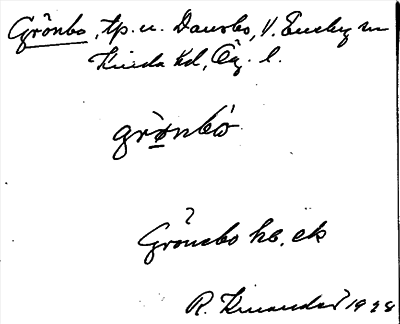 Grönbo, tp. u. Dansbo, V. Eneby sn
Kinda hd, Ög. l.
grò̱nbò
Grönebo hb. ek
R. Kinander 1928